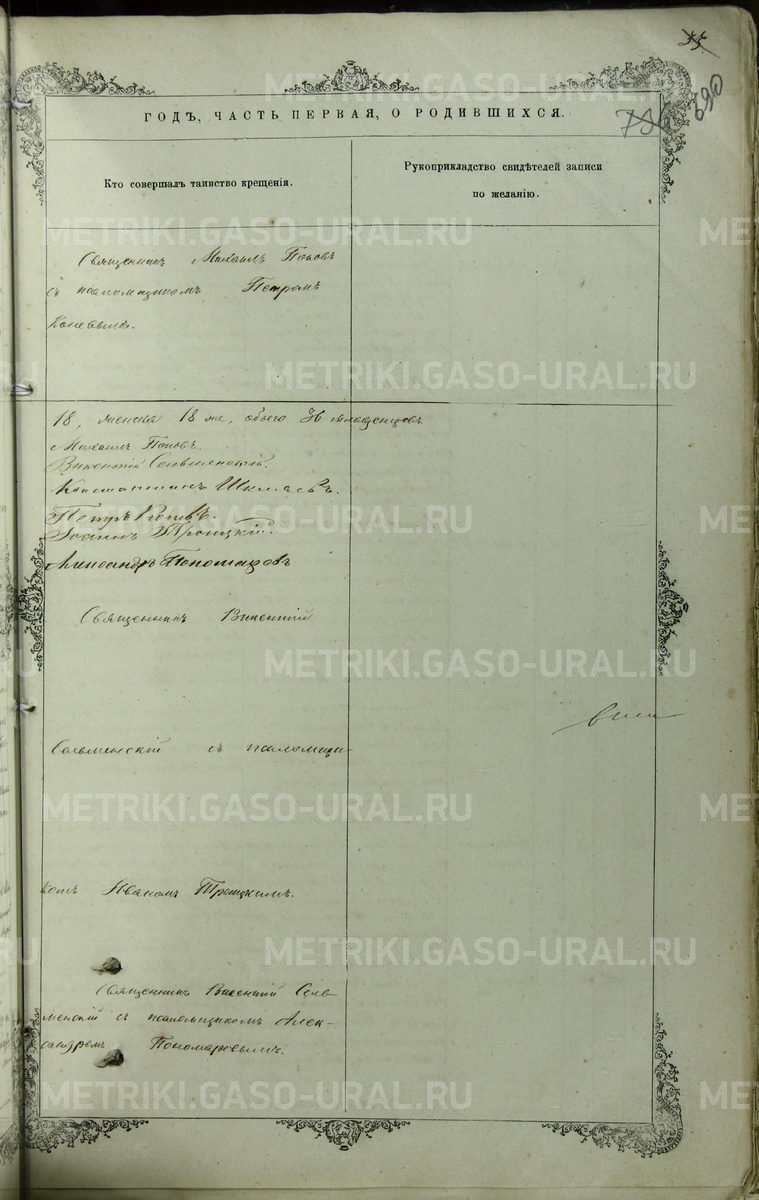 35
690
ГОДЪ, ЧАСТЬ ПЕРВАЯ, О РОДИВШИХСЯ.
Кто совершалъ таинство крещенія.
Рукоприкладство свидѣтелей записи
по желанію.
Священникъ Михаилъ Поповъ
съ псаломщикомъ Петромъ
18, женска 18 же, обоего 36 младенцовъ.
Михаилъ Поповъ.
Викентій Сельменскій.
Константинъ
Петръ
Іоаннъ Троицкій.
Александръ Пономаревъ
Священникъ Викентій
Сельменскій съ псаломщи-
комъ Иваномъ Троицкимъ.
Священникъ Викентій Сель-
менскій съ псаломщикомъ Алек-
сандромъ Пономаревымъ.
METRIKI.GASO-URAL.RU